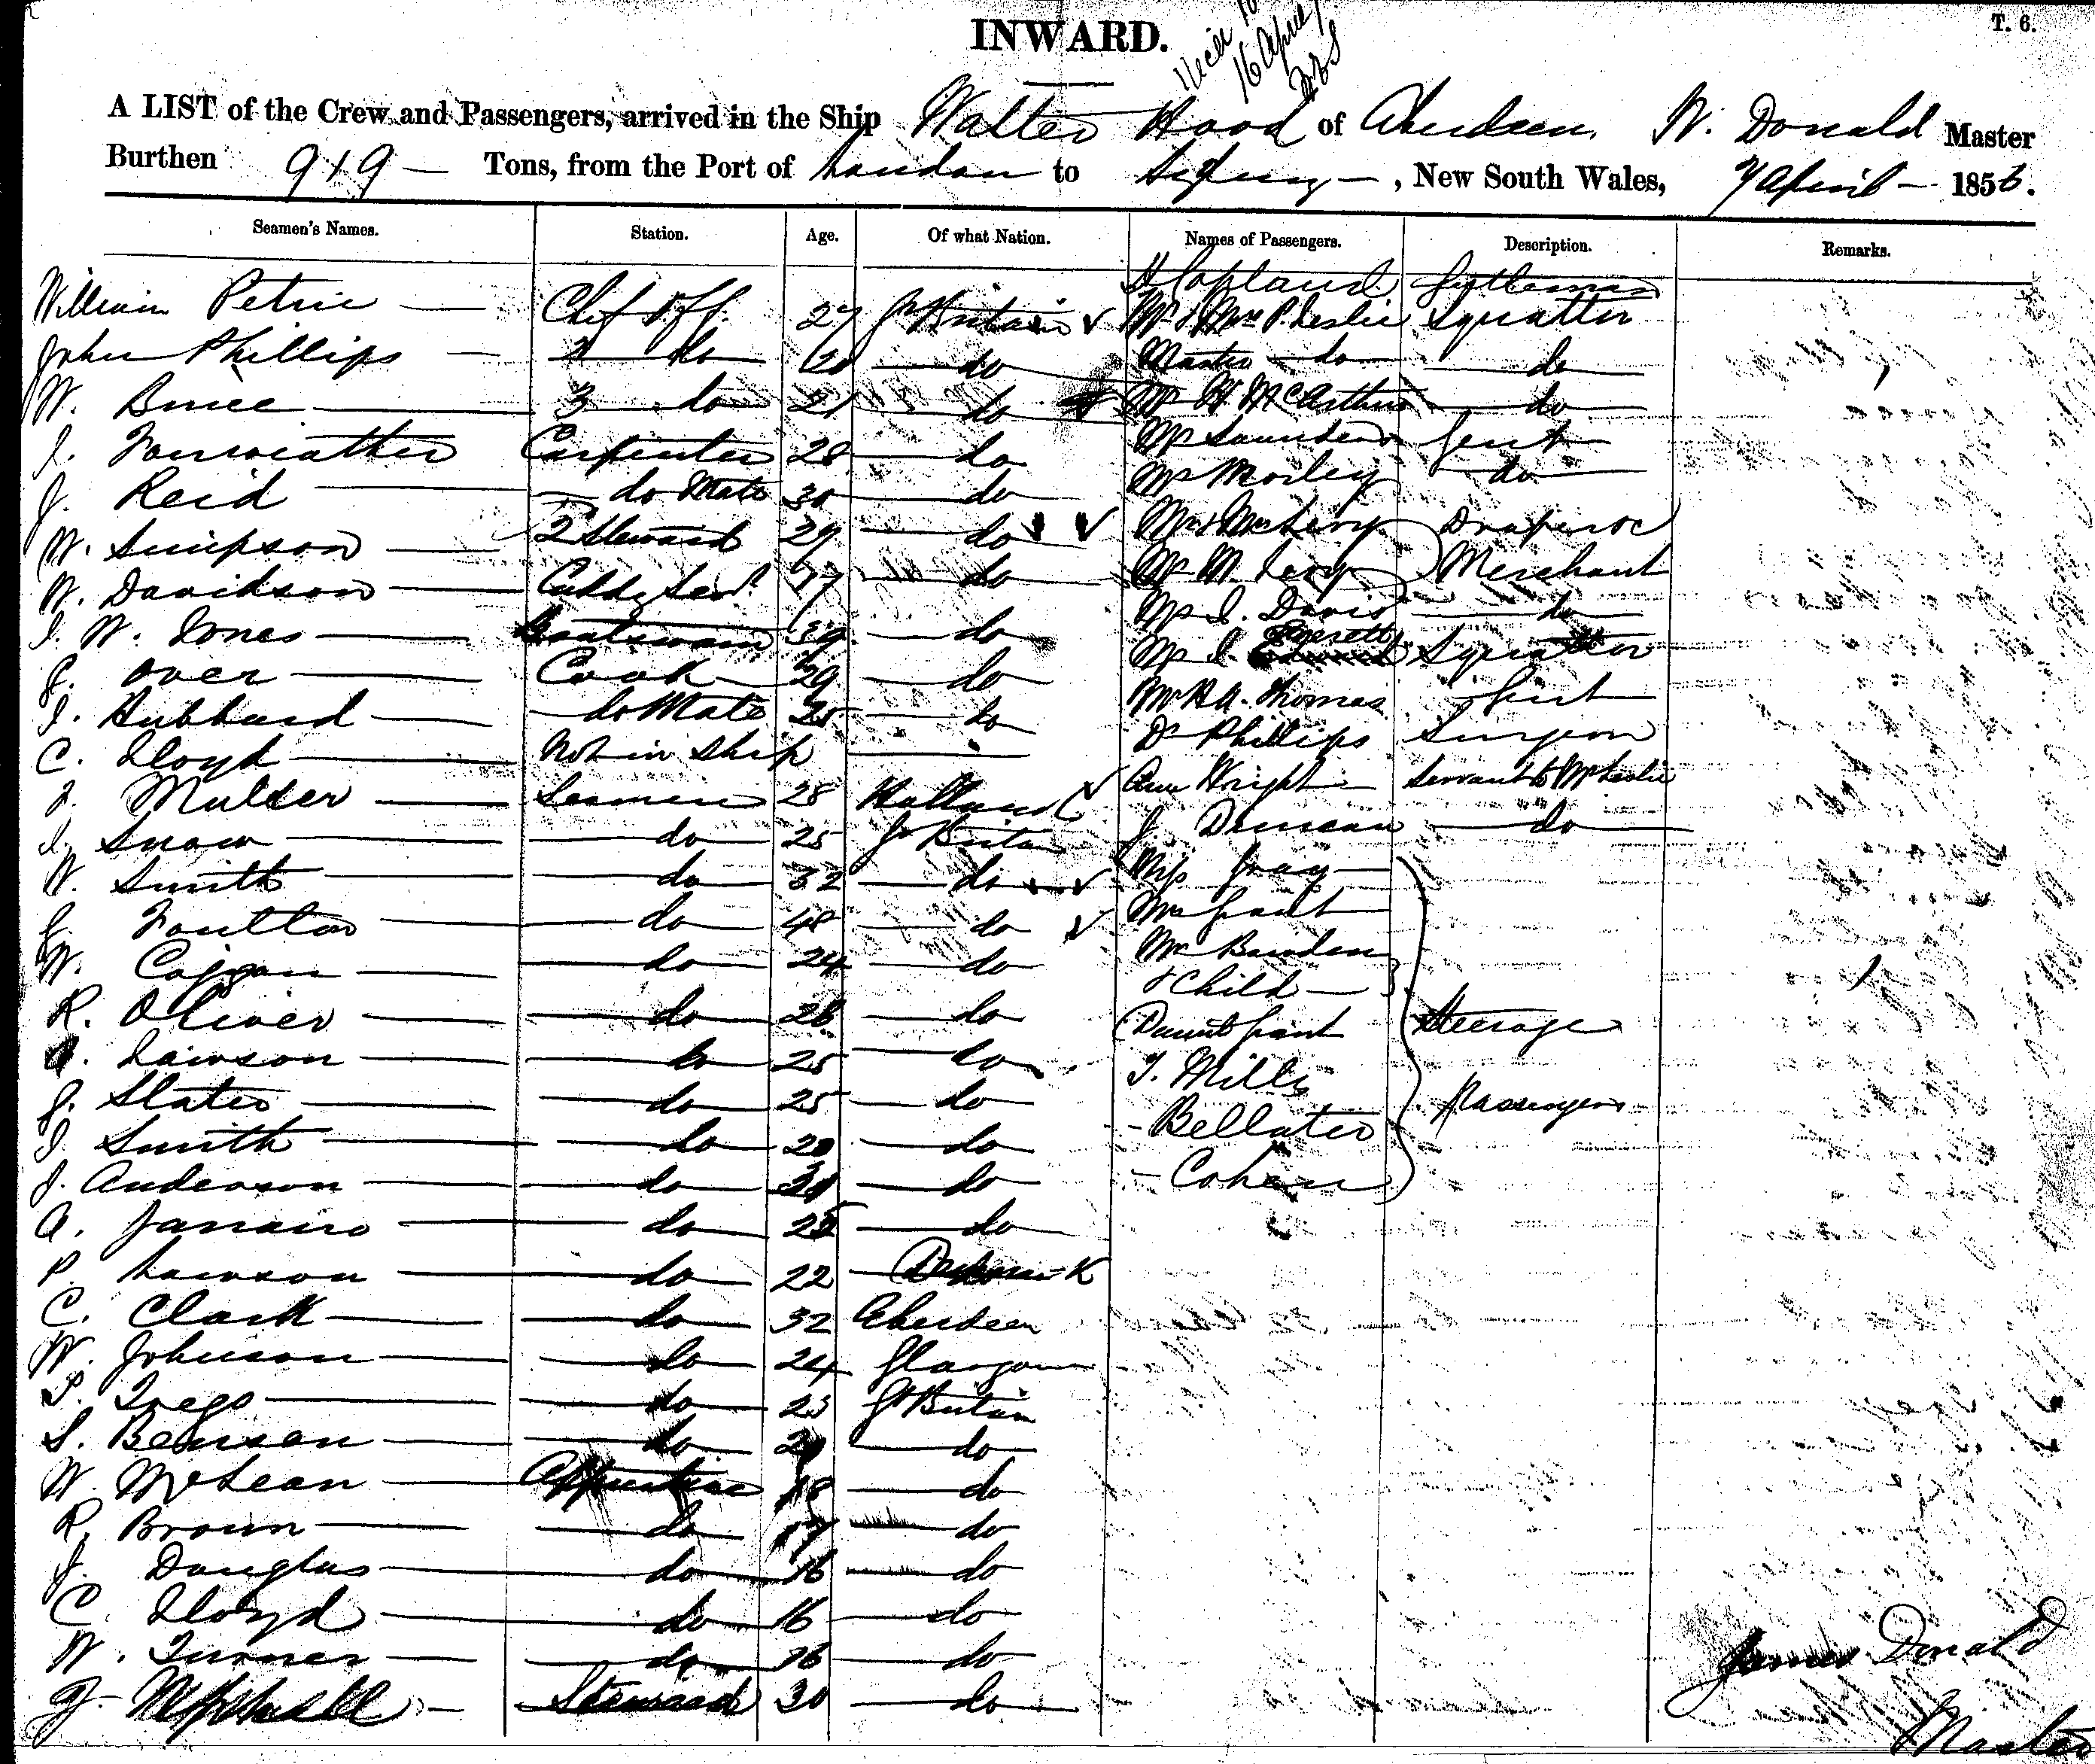 INWARD.
T. 6.
16 April
A LIST of the Crew and Passengers, arrived in the Ship Walter Hood of Aberdeen, W. Donald Master
Burthen 919 — Tons, from the Port of London to Sydney —, New South Wales, 7 April — 1856.
Seamen's Names. Station. Age. Of what Nation. Names of Passengers. Description. Remarks.
H Copland Gentleman
William Petrie — Chief Off. 27 Gt Britain Mr & Mrs P. Leslie Squatter
John Phillips — 2 do 20 do Master do do
W. Bruce — 3 do 21 do Mr H McArthur do
J. Fairweather Carpenter 28 do Mr Saunders Gent
J. Reid — do Mate 30 do Mr Morley do
W. Simpson — 2 Steward 29 do Mr & Mrs Levy Draper &c
W. Davidson — Cuddy Servt 17 do Mr M. Levy Merchant
J. W. Jones — Boatswain 39 do Mr I. Davis do
J. Over — Cook 29 do Mr J. Everett Squatter
J. Hubbard — do Mate 25 do Mr H A. Thomas Gent
C. Lloyd — Not in Ship — Dr Phillips Surgeon
J. Mulder — Seamen 28 Holland Ann Wright Servant to Mr Leslie
J. Snow — do 25 Gt Britain J. Duncan do
W. Smith — do 32 do Gray
J. Foulton — do 48 do Mrs Grant
W. Coggan — do 24 do Mrs Burden
& Child —
R. Oliver — do 26 do Grant Steerage
Lawson — do 25 do T. Mills
J. Slater — do 25 do - Bellater Passengers
J. Smith — do 20 do
J. Anderson — do do - Cohen
A. Janairo — do 25 do
P. Lawson — do 22 Denmark
C. Clark — do 32 Aberdeen
W. Johnson — do 24 Glasgow
Trego — do 23 Gt Britain
S. Benson — do do
W. McLean — Apprentice 18 do
R. Brown — do 17 do
J. Douglas — do 16 do
C. Lloyd — do 16 do
W. Turner — do 16 do
J. — Steward 30 do
James Donald
Master